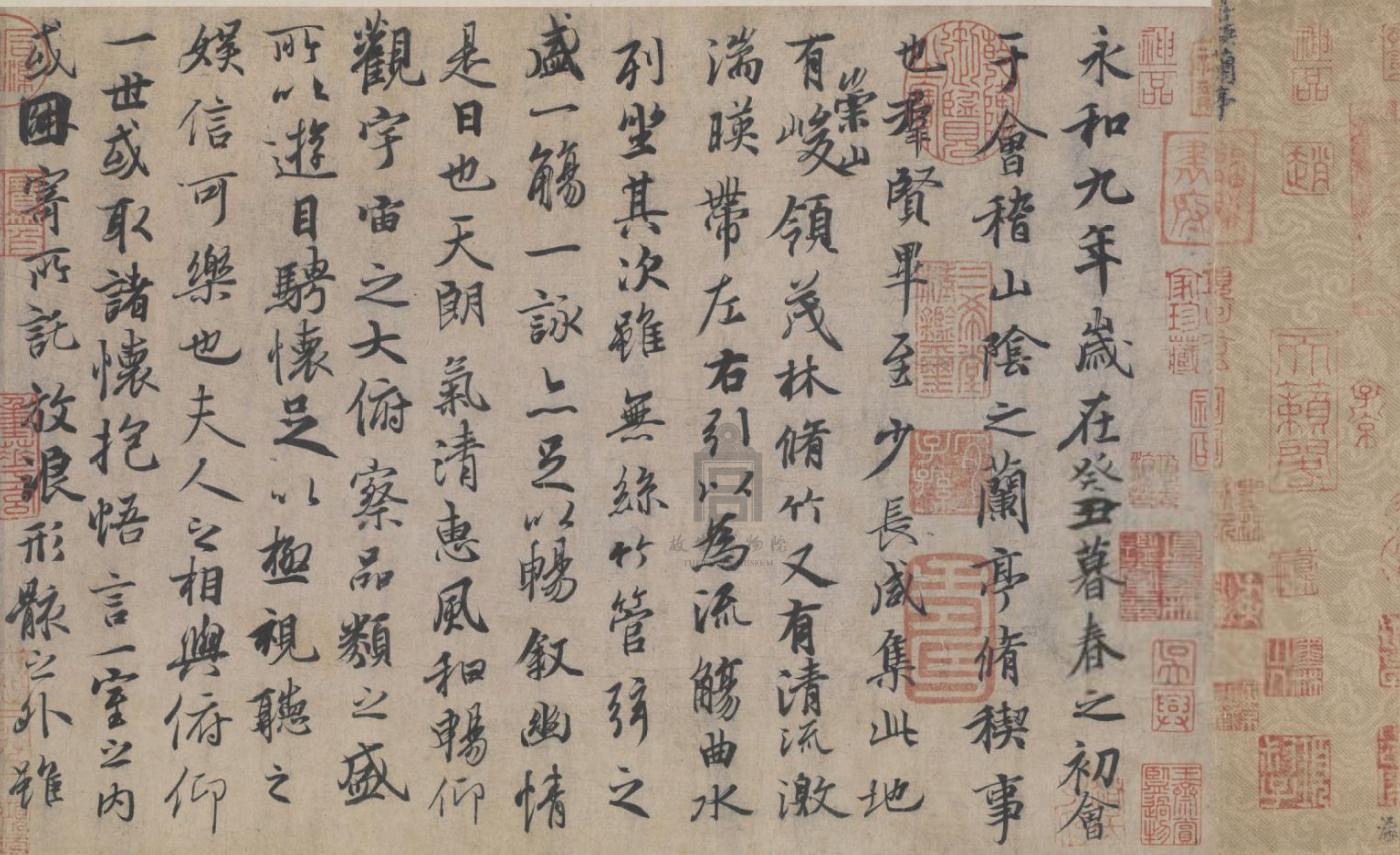 神品
永和九年歲在癸丑暮春之初會
于會稽山陰之蘭亭脩稧事
也羣賢畢至少長咸集此地
有崇山峻領茂林脩竹又有清流激
湍暎帶左右引以為流觴曲水
列坐其次雖無絲竹管弦之
盛一觴一詠亦足以暢叙幽情
是日也天朗氣清惠風和暢仰
觀宇宙之大俯察品類之盛
所以遊目騁懷足以極視聽之
娛信可樂也夫人之相與俯仰
一世或取諸懷抱悟言一室之內
或因寄所託放浪形骸之外雖
神品
趙
書府
家珍藏
三希堂精鑑璽
宜子孫
吳興